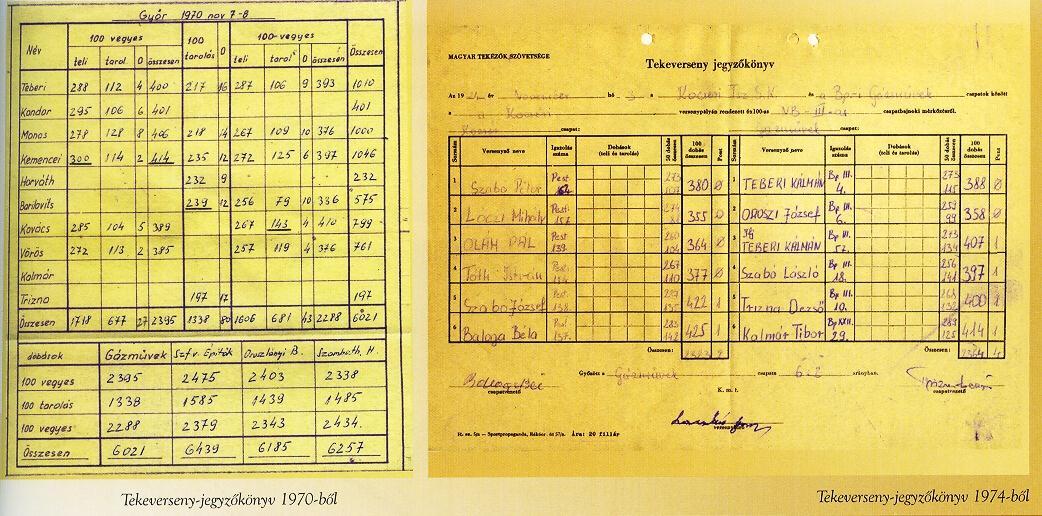 Győr 1970 nov 7-8
Név 100 vegyes 100 tarolás 0 100 vegyes Összesen
teli tarol 0 összesen teli tarol 0 összesen
Teberi 288 112 4 400 217 16 287 106 9 393 1010
Kandar 295 106 6 401 401
Monos 278 128 8 406 218 14 267 109 10 376 1000
Kemencei 300 114 2 414 235 12 272 125 6 397 1046
Horváth 232 9 232
Barilovits 239 12 256 79 10 336 575
Kovács 285 104 5 389 267 143 4 410 799
Vörös 272 113 2 385 257 119 4 376 761
Kalmár
Trizna 197 17 197
Összesen 1718 677 27 2395 1338 80 1606 681 43 2288 6021
dobások Gázművek Szfv. Építők Oroszlányi B. Szombath. H.
100 vegyes 2395 2475 2403 2338
100 tarolás 1338 1585 1439 1485
100 vegyes 2288 2379 2343 2434.
Összesen 6021 6439 6185 6257
Tekeverseny-jegyzőkönyv 1970-ből
MAGYAR TEKÉZŐK SZÖVETSÉGE
Tekeverseny jegyzőkönyv
Az 19 év November hó 3-n a Kocséri Tsz S.K. és a Bp-i Gázművek csapatok között
a Kocséri versenypályán rendezett 6x100-as NB-III-as csapatbajnoki mérkőzésről.
csapat: Gázművek csapat:
Sorszám Versenyző neve Igazolás száma Dobások (teli és tarolás) 50 dobás összesen 100 dobás összesen Pont Sorszám Versenyző neve Igazolás száma Dobások (teli és tarolás) 50 dobás összesen 100 dobás összesen Pont
1 Szabó Péter Pest 273 107 380 0 1 TEBERI KÁLMÁN Bp III. 4. 273 115 388 0
2 Loczi Mihály Pest. 157. 274 81 355 0 2 OROSZI József Bp III. 6. 259 99 358 0
3 OLÁH PÁL Pest 139. 260 104 364 0 3 Ifj TEBERI KÁLMÁN Bp III. 57. 273 134 407 1
4 Tóth István Pest. 267 110 377 0 4 Szabó László Bp III. 18. 256 141 397 1
5 Szabó József Pest. 138. 422 1 5 Trizna Dezső Bp III. 10. 268 132 400 1
6 Baloga Béla Pest 137. 283 142 425 1 6 Kalmár Tibor Bp XXII. 29. 289 125 414 1
Összesen: 2323 2 Összesen: 2364 4
Győzött a Gázművek csapata 6:2 arányban.
Baloga Béla
csapatvezető K. m. f. csapatvezető
versenybíró
Ára: 20 fillér
Tekeverseny-jegyzőkönyv 1974-ből